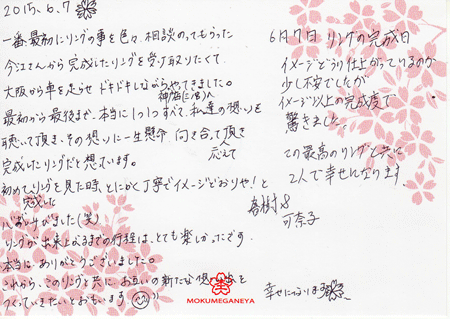 2015.6.7
一番最初にリングの事を色々相談のってもらった
今江さんから完成したリングを受け取りたくて
大阪から車を走らせ ドキドキしながらやってきました。
神宮に(笑)
最初から最後まで、本当に1つ1つすべて、私達の想いを
聴いて頂き、その想いに一生懸命 向き合って頂き
応えて
完成したリングだと想います。
初めてリングを見た時、とにかく丁寧でイメージどおりや!と
完成した
さけびました(笑)
リングが出来上がるまでの行程は、とても楽しかったです。
本当に、ありがとうございました。
これから、このリングと共に、お互いの新たな想い出を
つくっていきたいとおもいます
6月7日 リングの完成日
イメージどうり仕上がっているのか
少し不安でしたが
イメージ以上の完成度で
驚きました。
この最高のリングと共に
2人で幸せになります
春樹 &
可奈子
幸せになりま
MOKUMEGANEYA